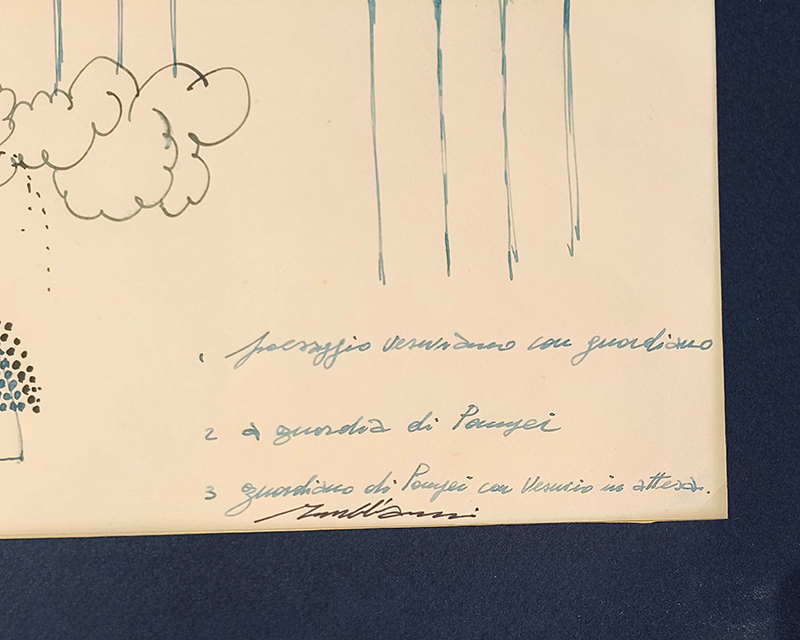 1 paesaggio vesuviano con guardiano
2 a guardia di Pompei
3 guardiano di Pompei con Vesuvio in attesa.